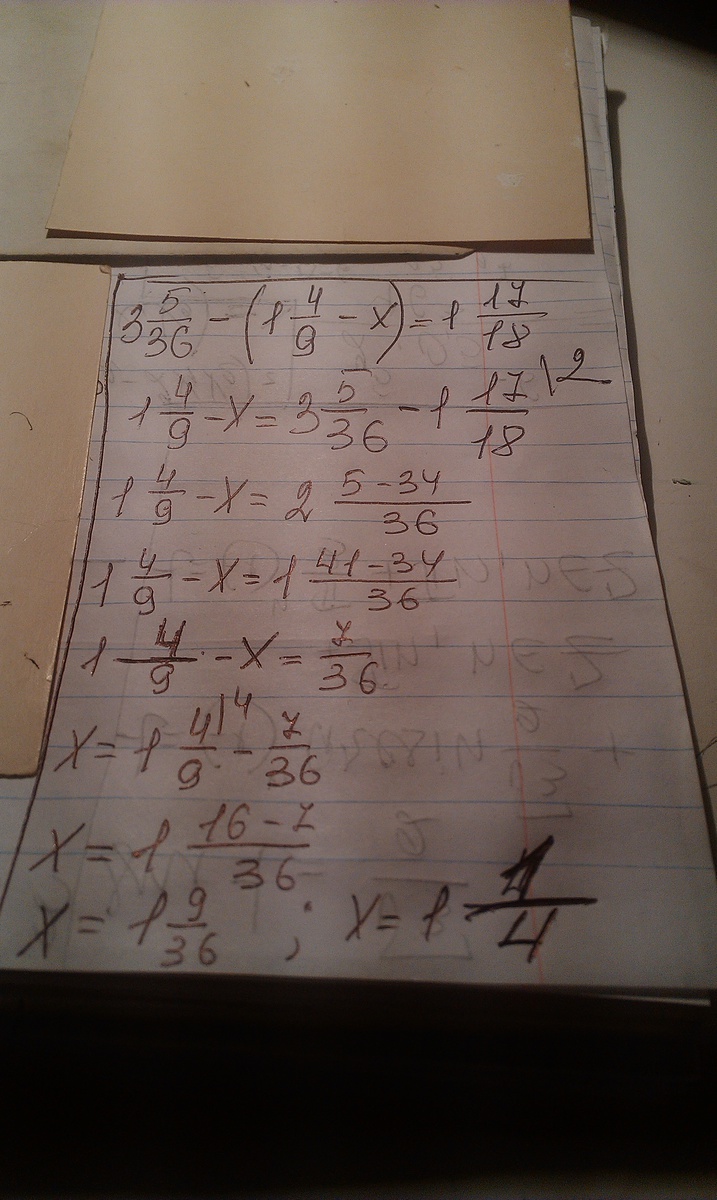 3 5/36 - (1 4/9 - x) = 1 17/18
1 4/9 - x = 3 5/36 - 1 17/18 \2
1 4/9 - x = 2 5-34/36
1 4/9 - x = 1 41-34/36
1 4/9 - x = 7/36
x = 1 4/9 \4 - 7/36
x = 1 16-7/36
x = 1 9/36 ; x = 1 1/4